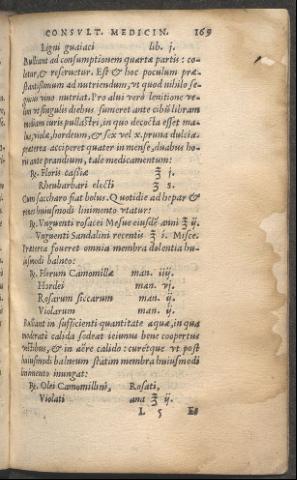 CONSVLT. MEDICIN. 169
Ligni guaiaci lib. j.
Bulliant ad consumptionem quartæ partis: co-
letur, & reseruetur. Est & hoc poculum præ-
stantissimum ad nutriendum, vt quod nihilo se-
gnius vino nutriat. Pro alui verò lenitione ve-
lim vt singulis diebus sumeret ante cibũ libram
mediam iuris pullastri, in quo decocta esset mal-
ua, violæ, hordeum, & sex vel x. pruna dulcia:
præterea acciperet quater in mense, duabus ho-
ris ante prandium, tale medicamentum:
℞. Floris cassiæ ℥ j.
Rheubarbari electi ʒ s.
Cum saccharo fiat bolus. Quotidie ad hepar &
renes huiusmodi linimento vtatur:
℞. Vnguenti rosacei Mesue eiusdẽ anni ℥ ij.
Vnguenti Sandalini recentis ℥ i. Misce.
Præterea foueret omnia membra dolentia hu-
iusmodi balneo:
℞. Florum Camomillæ man. iiij.
Hordei man. vj.
Rosarum siccarum man. ij.
Violarum man. ij.
Bulliant in sufficienti quantitate aquæ, in qua
moderatè calida sedeat ieiunus bene coopertus
vestibus, & in aëre calido: curetque vt post
huiusmodi balneum statim membra huiusmodi
linimento inungat:
℞. Olei Camomillini, Rosati,
Violati ana ℥ ij.
L 5 Et